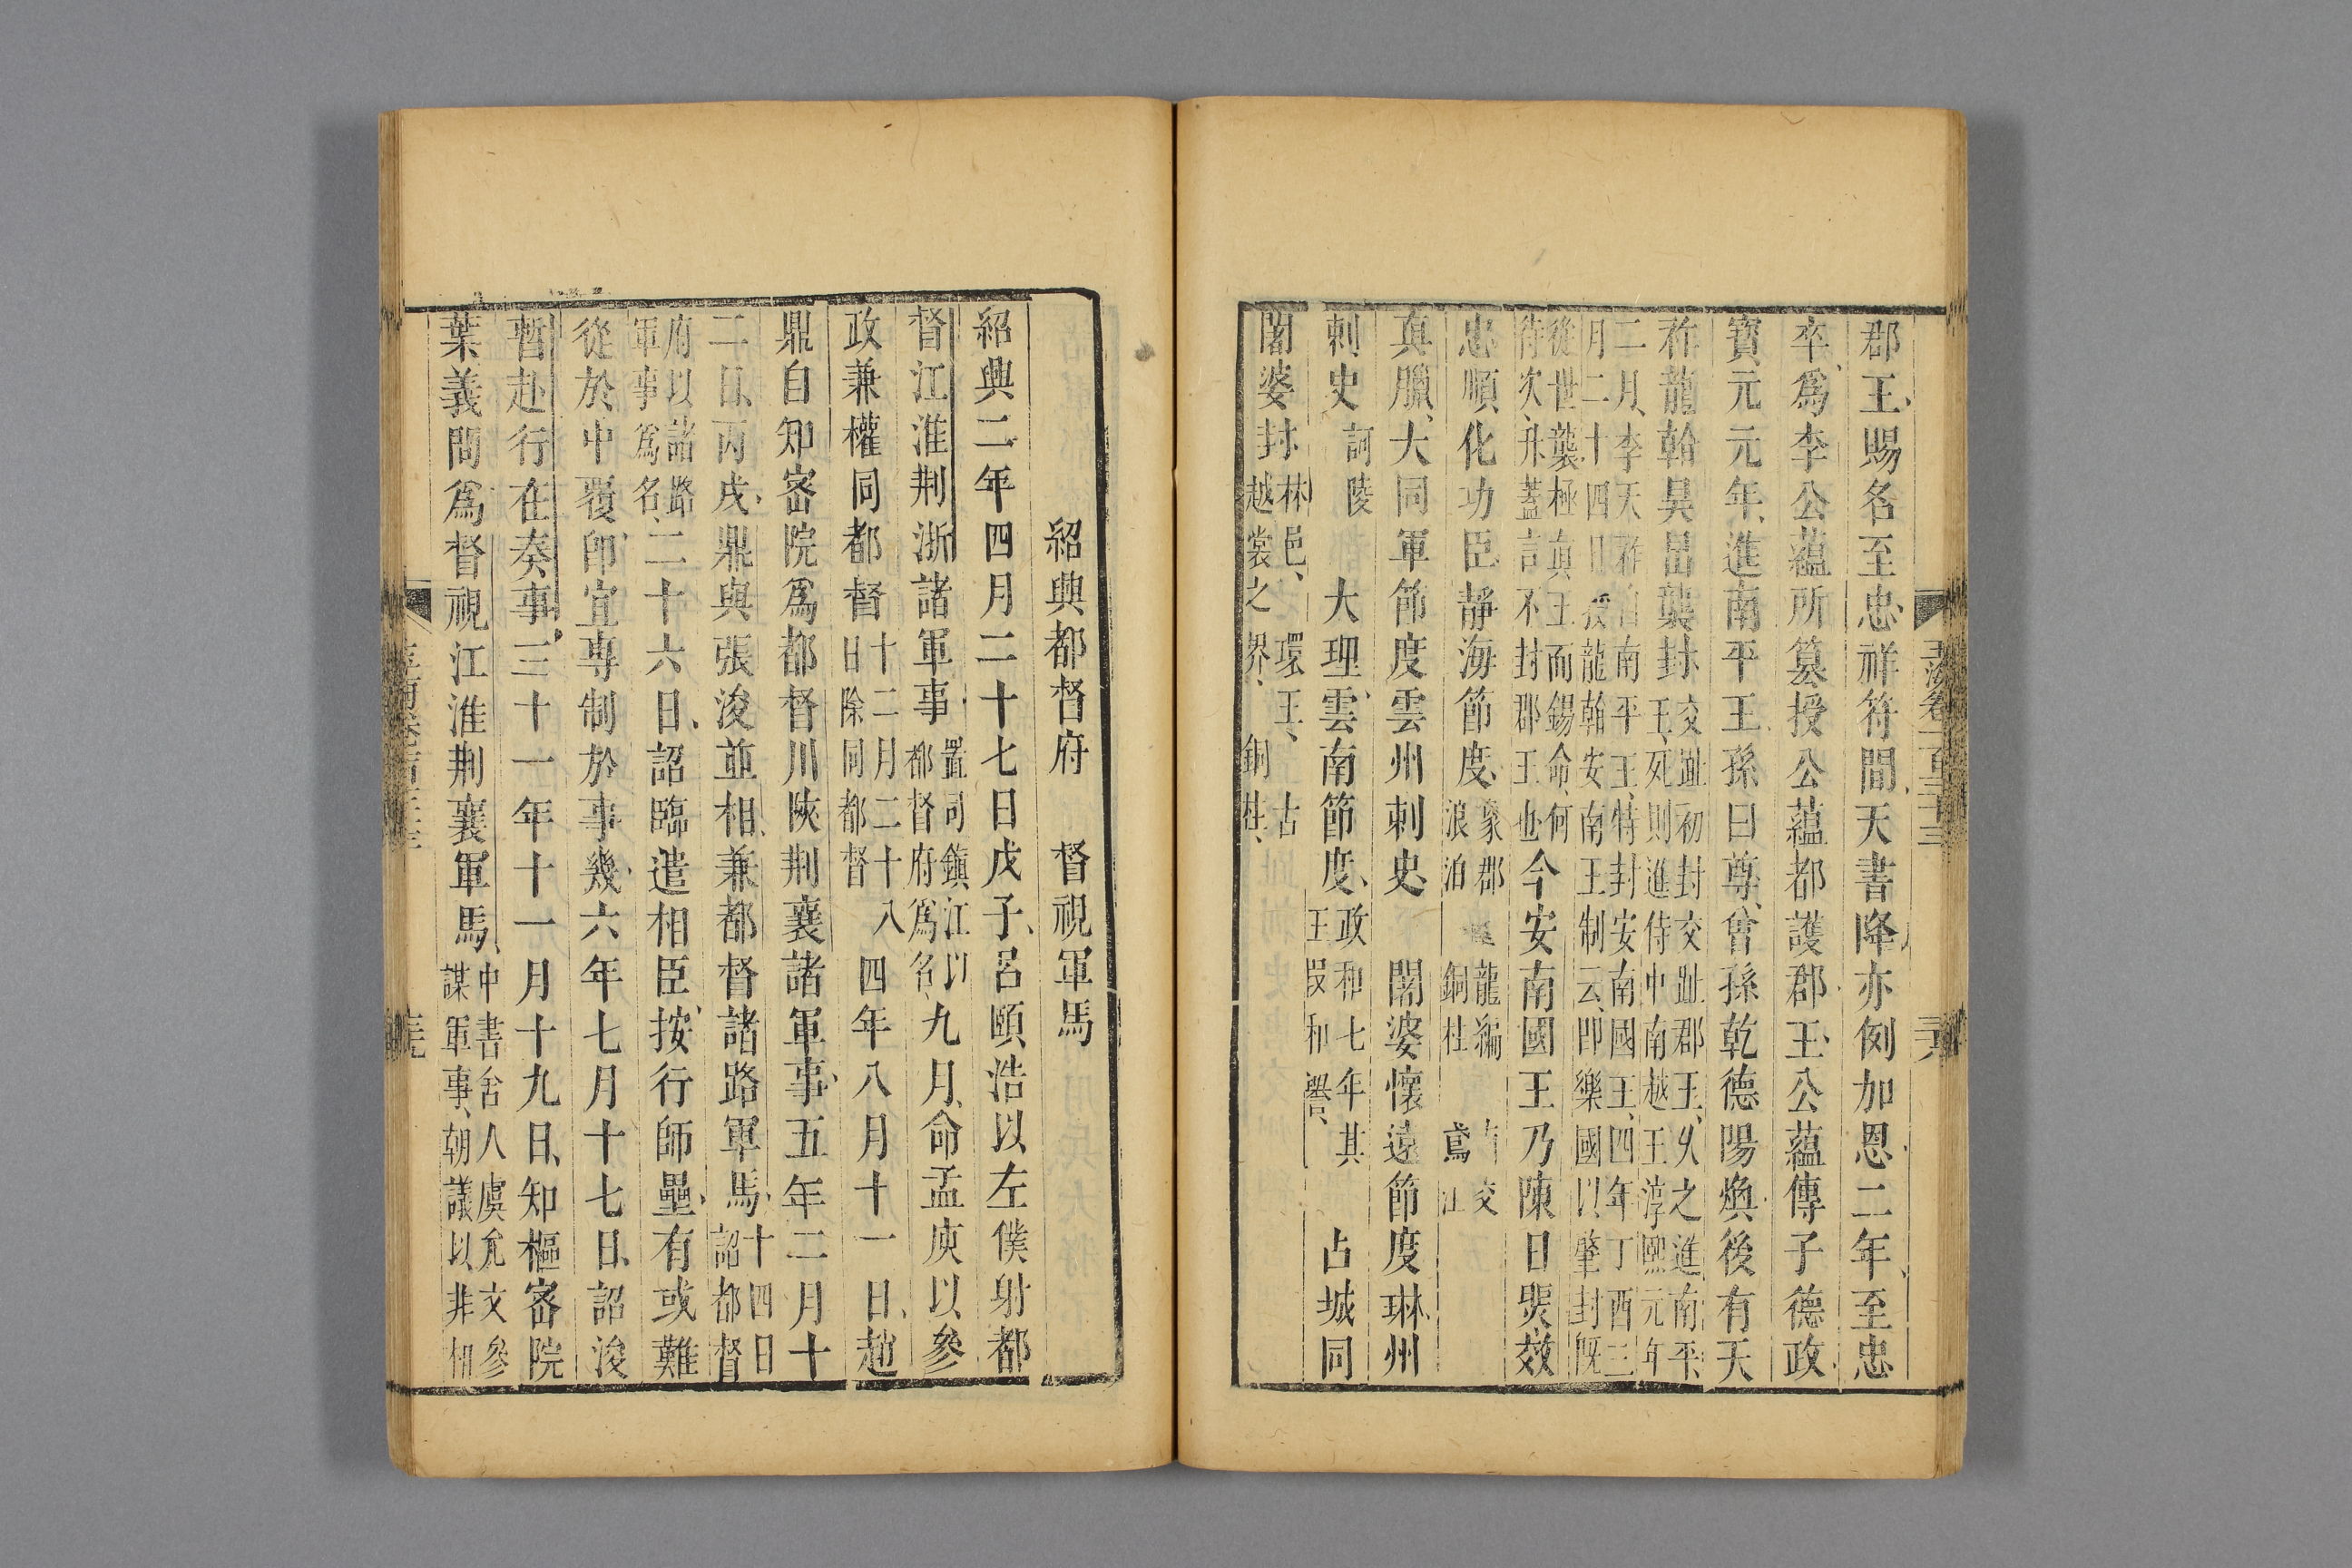 郡王賜名至忠祥符間天書降亦例加恩二年至忠
卒爲李公蘊所篡授公蘊都護郡王公蘊傳子德政
寶元元年進南平王孫曰尊曾孫乾德陽煥後有天
祚龍翰昊旵襲封交趾初封交趾郡王久之進南平
王死則進侍中南越王淳熙元年
二月李天祚自南平王特封安南國王四年丁酉三
月二十四日授龍翰安南王制云即樂國以肇封旣
從世襲極眞王而錫命何
待次升蓋言不封郡王也今安南國王乃陳日煚效
忠順化功臣靜海節度象郡
浪泊
龍編
銅柱
交
鳶
眞臘大同軍節度雲州刺史
闍婆懷遠節度琳州
刺史訶陵
大理雲南節度政和七年其
王段和譽
占城同
闍婆封林邑環王古
越裳之界銅柱
三六
紹興都督府
督視軍馬
紹興二年四月二十七日戊子呂頤浩以左僕射都
督江淮荆浙諸軍事置司鎮江以
都督府爲名九月命孟庾以參
政兼權同都督十二月二十八
日除同都督四年八月十一日趙
鼎自知密院爲都督川陝荆襄諸軍事五年二月十
二日丙戌鼎與張浚並相兼都督諸路軍馬十四日
詔都督
府以諸路
軍事爲名二十六日詔臨遣相臣按行師壘有或難
從於中覆卽宜專制於事幾六年七月十七日詔浚
暫赴行在奏事三十一年十一月十九日知樞密院
葉義問爲督視江淮荆襄軍馬中書舍人虞允文參
謀軍事朝議以非相